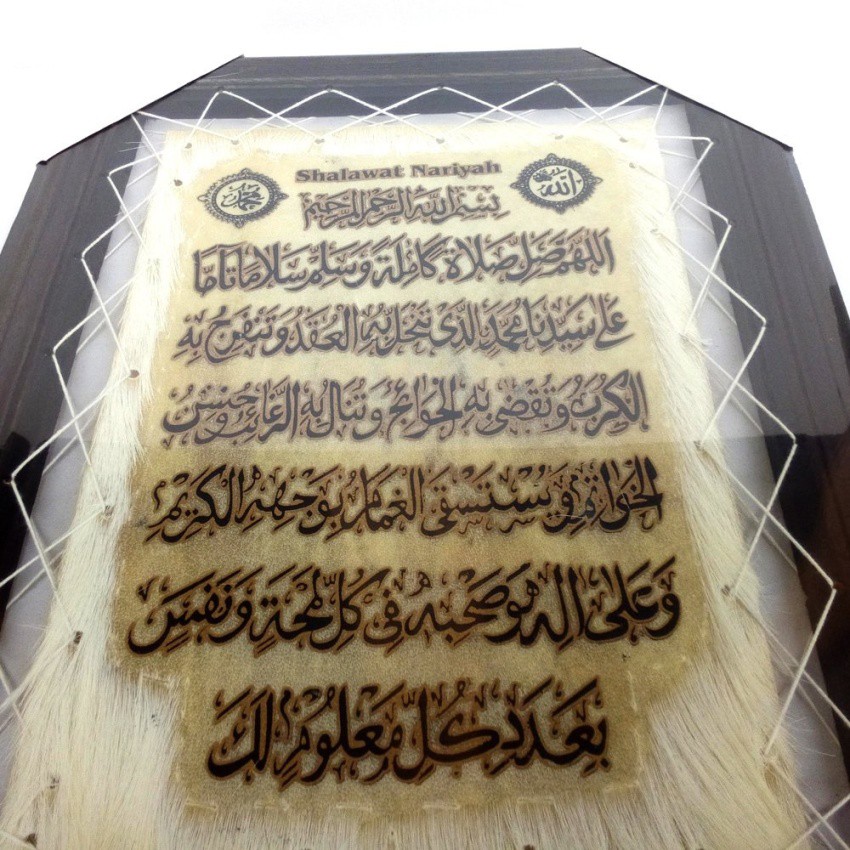 Shalawat Nariyah
محمد
الله
بسم الله الرحمن الرحيم
اللهم صل صلاة كاملة وسلم سلاما تاما
على سيدنا محمد الذي تنحل به العقد وتنفرج به
الكرب وتقضى به الحوائج وتنال به الرغائب وحسن
الخواتم ويستسقى الغمام بوجهه الكريم
وعلى اله وصحبه في كل لمحة ونفس
بعدد كل معلوم لك